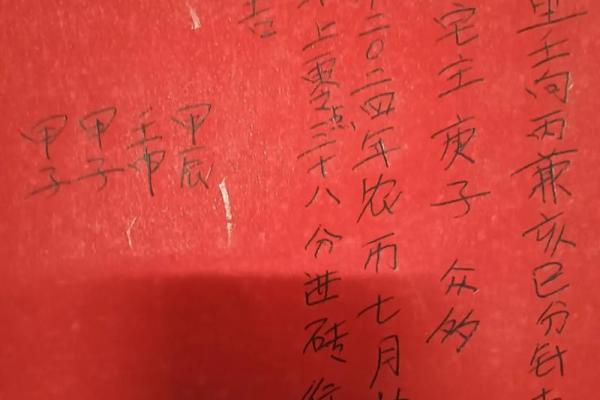 壬向丙兼亥巳分针
宅主庚子 众多
二〇二四年农历七月
上零点三十八分进砖
吉
甲辰
壬申
甲子
甲子